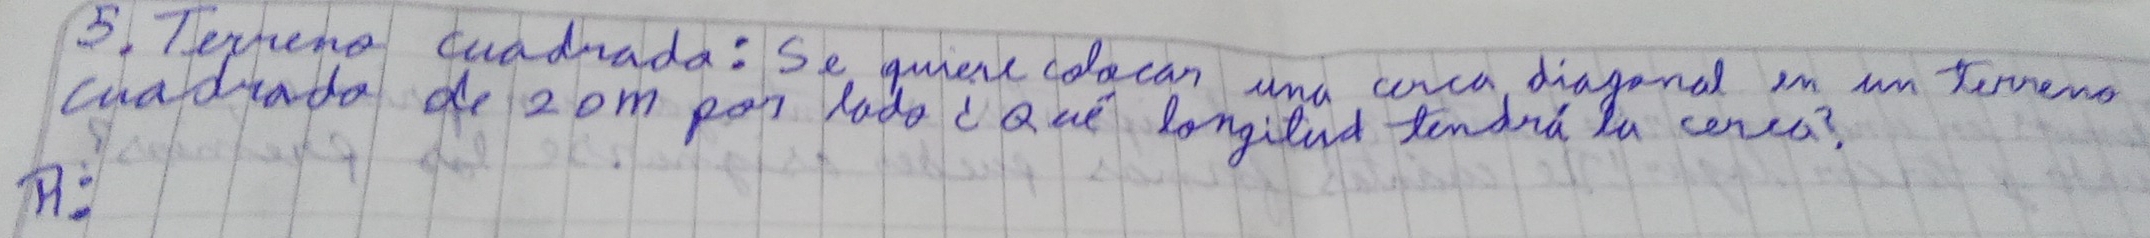 5. Terreno cuadrado: Se quiere colocar una cerca diagonal en un terreno
cuadrado de 20m por lado ¿Qué longitud tendrá la cerca?
R: